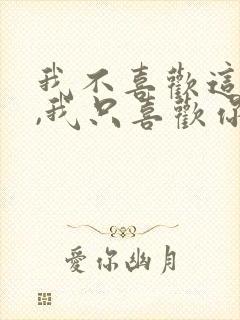 我不喜歡這
,我只喜歡你
愛你幽月